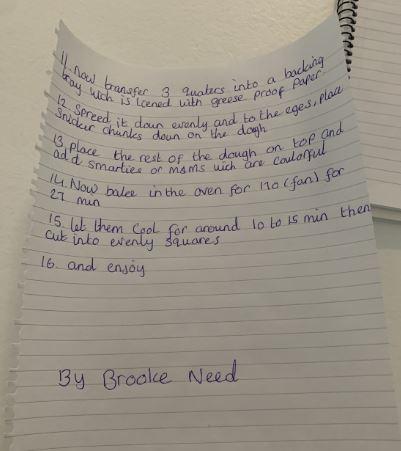 11. Now transfer 3 quaters into a backing
tray wich is leened with greese proof Paper.
12. Spreed it down evenly and to the eges, place
Snicker chunks down on the dogh
13. Place the rest of the dough on top and
add smarties or m&ms wich are coulorful
14. Now bake in the oven for 170 (fan) for
27 min
15. let them cool for around 10 to 15 min then
cut into evenly squares
16. and enjoy
By Brooke Need